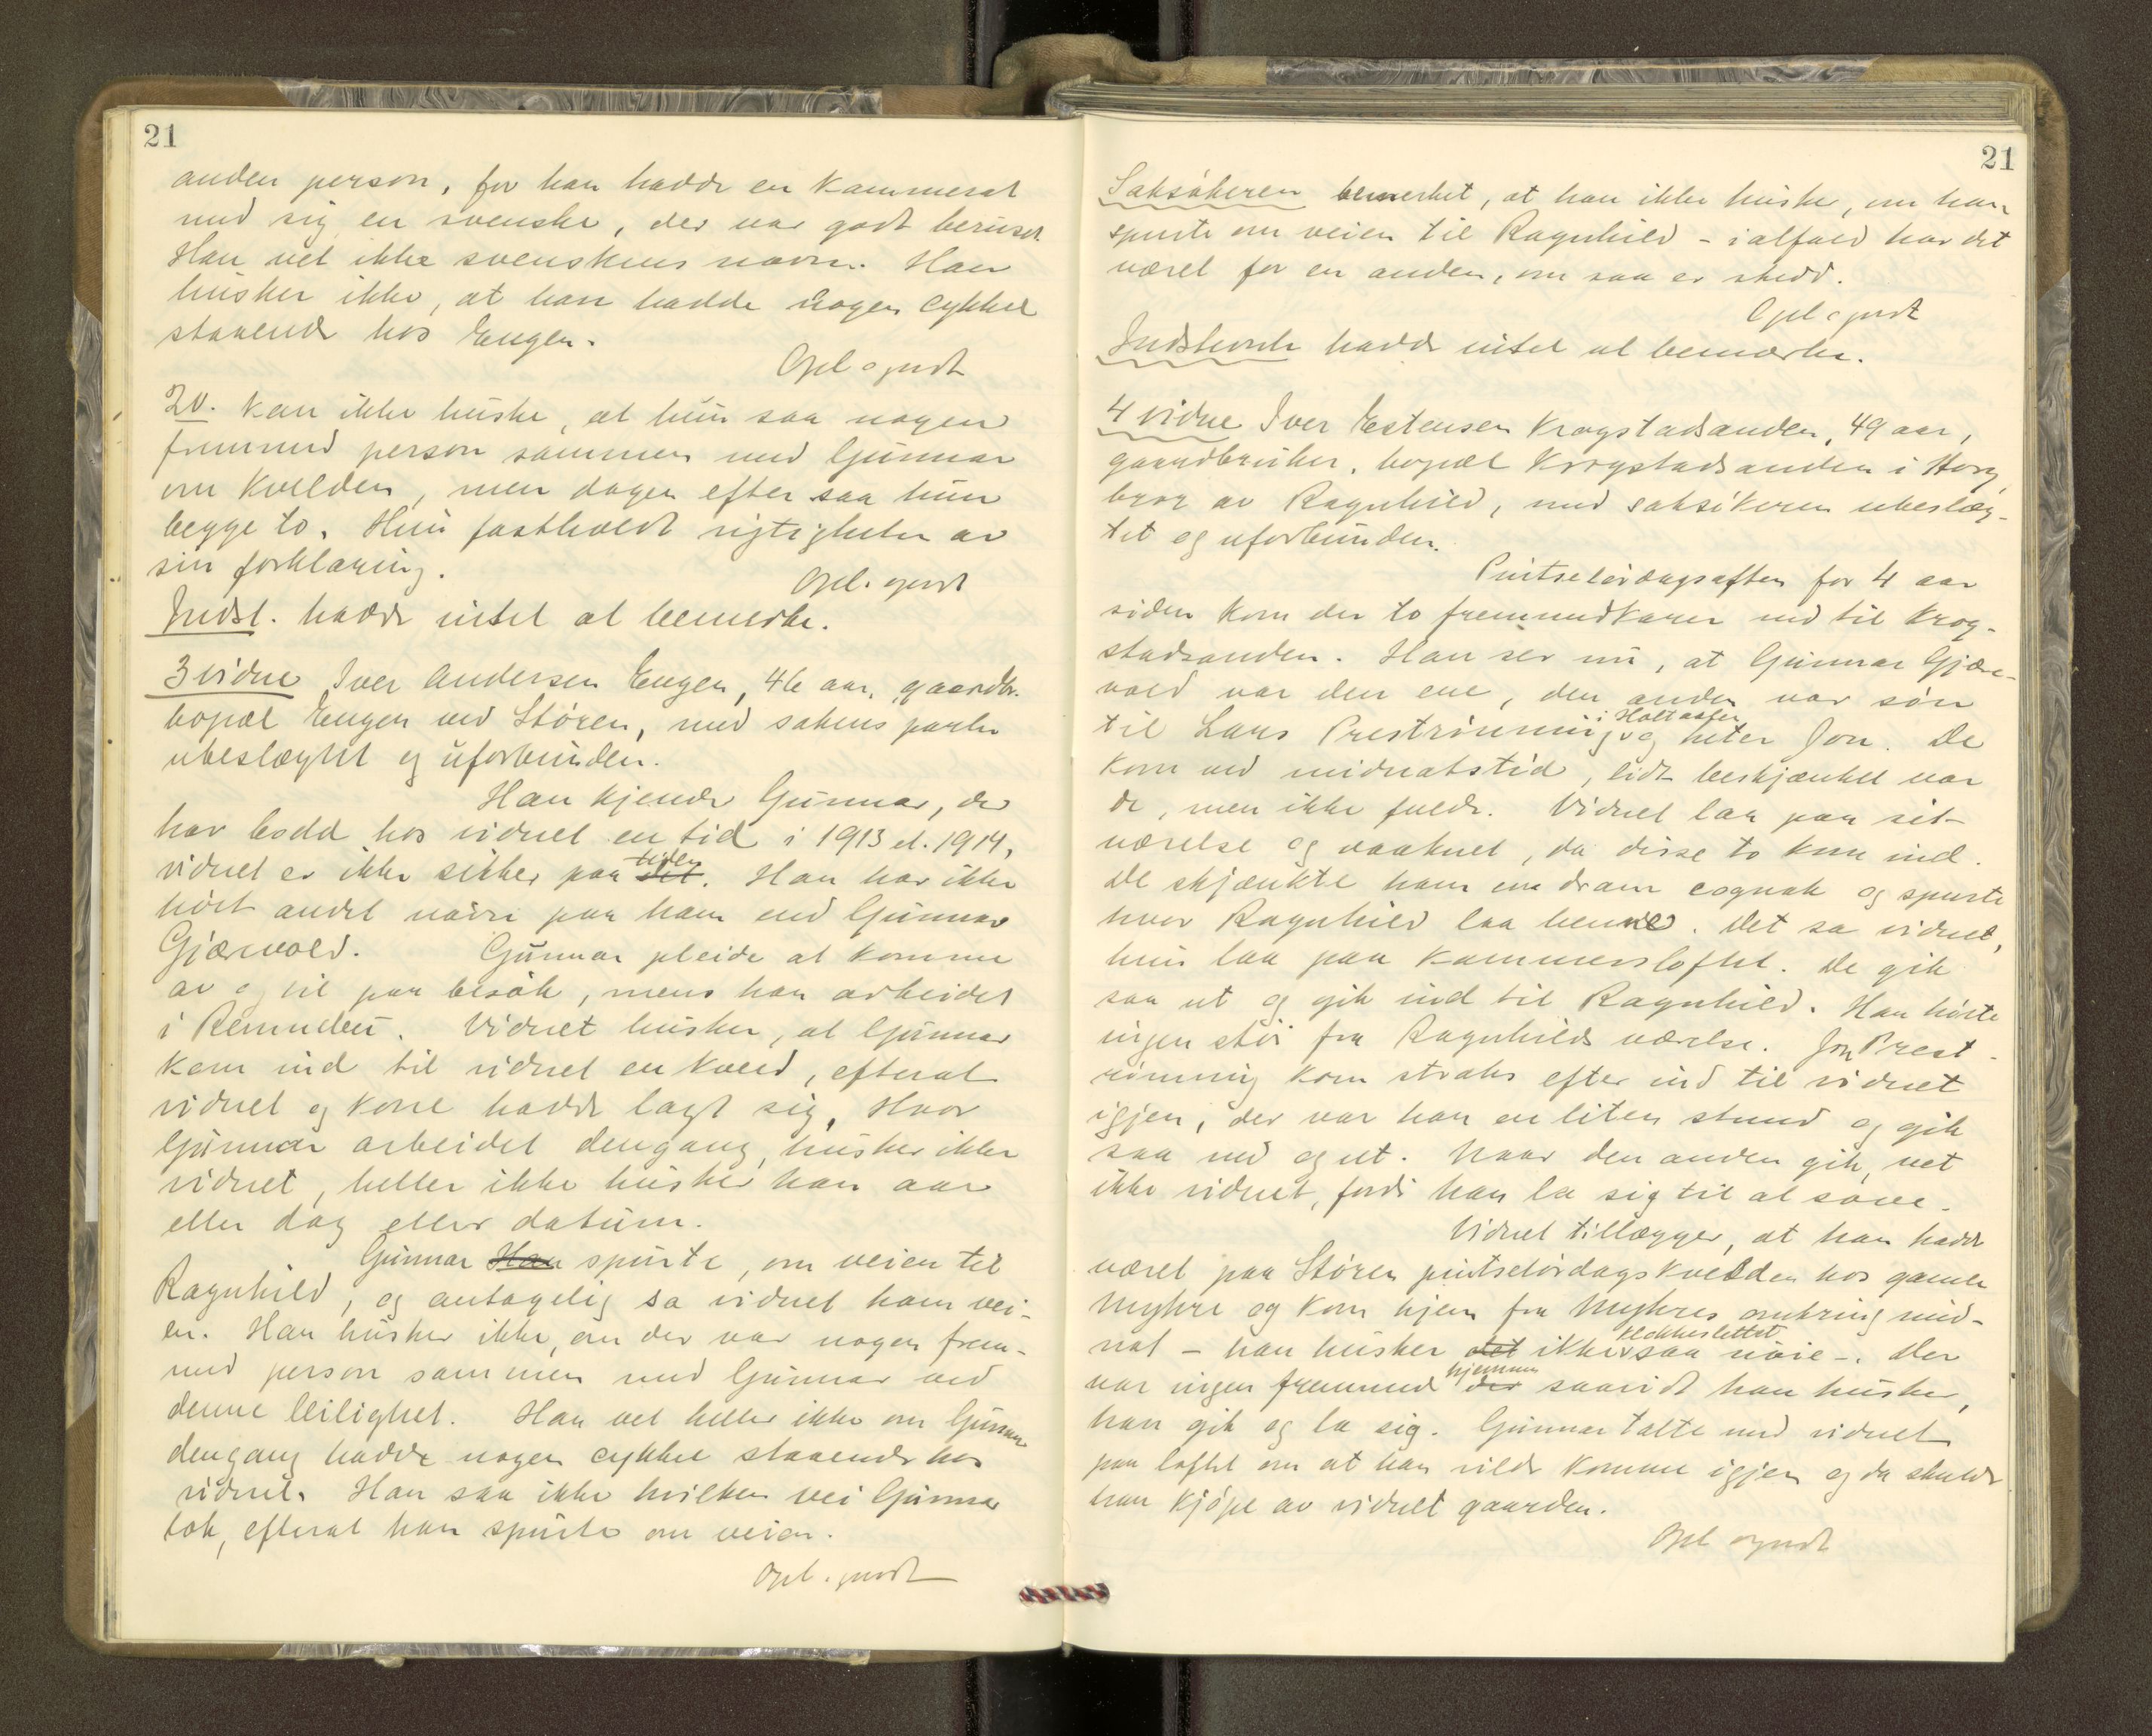 21
anden person, for han hadde en kammerat
med sig en svenske, der var godt beruset.
Han vet ikke svenskens navn. Han
husker ikke, at han hadde nogen cykkel
staaende hos Engen.
Opl. og vedt
2 v. kan ikke huske, at hun saa nogen
fremmed person sammen med Gunnar
om kvelden, men dagen efter saa hun
begge to. Hun fastholdt rigtigheten av
sin forklaring.
Opl. og vedt
Indst. hadde intet at bemerke.
3 vidne Iver Andersen Engen, 46 aar, gaardbr.
bopæl Engen ved Støren, med sakens parter
ubeslægtet og uforbunden.
Han kjende Gunnar, der
har bodd hos vidnet en tid i 1913 el. 1914,
vidnet er ikke sikker paa det tiden. Han har ikke
hørt andet navn paa ham end Gunnar
Gjærevold. Gunnar pleide at komme
av og til paa besøk, mens han arbeidet
i Vidnet husker, at Gunnar
kom ind til vidnet en kveld, efterat
vidnet og kone hadde lagt sig. Hvor
Gunnar arbeidet dengang, husker ikke
vidnet, heller ikke husker han aar
eller dag eller datum.
Gunnar Han spurte, om veien til
Ragnhild, og antagelig sa vidnet ham vei-
en. Han husker ikke, om der var nogen frem-
med person sammen med Gunnar ved
denne leilighet. Han vet heller ikke om Gunnar
dengang hadde nogen cykkel staaende hos
vidnet. Han saa ikke hvilken vei Gunnar
tok, efterat han spurte om veien.
Opl. og vedt
21
Saksøkeren bemerket, at han ikke husker, om han
spurte om veien til Ragnhild - ialfald har det
været for en anden, om saa er skedd.
Opl og vedt
Indstevnte hadde intet at bemærke.
4 vidne Iver Estensen Krogstadsanden, 49 aar,
gaardbruker, bopæl Krogstadsanden i Horg,
bror av Ragnhild, med saksøkeren ubeslæg-
tet og uforbunden.
Pintselørdagsaften for 4 aar
siden kom der to fremmedkarer ned til Krog-
stadsanden. Han ser nu, at Gunnar Gjære-
vold var den ene, den anden var søn
til Lars Prestrønning i Holtaalen og heter Jon. De
kom ved midnatstid, lidt beskjænket var
de, men ikke fulde. Vidnet laa paa sit
værelse og vaaknet, da disse to kom ind.
De skjænkte ham en dram cognak og spurte
hvor Ragnhild laa henne. Det sa vidnet,
hun laa paa kammersloftet. De gik
saa ut og gik ind til Ragnhild. Han hørte
ingen støi fra Ragnhilds værelse. Jon Prest-
rønning kom straks efter ind til vidnet
igjen, der var han en liten stund og gik
saa ned og ut. Naar den anden gik, vet
ikke vidnet, fordi han la sig til at sove.
Vidnet tillægger, at han hadde
været paa Støren pintselørdagskvelden hos gamle
Myhre og kom hjem fra Myhres omkring mid-
nat - han husker det ikke klokkeslettet saa nøie -. Der
var ingen fremmed der hjemme saavidt han husker,
han gik og la sig. Gunnar talte med vidnet
paa loftet om at han vilde komme igjen og da skulde
han kjøpe av vidnet gaarden.
Opl og vedt